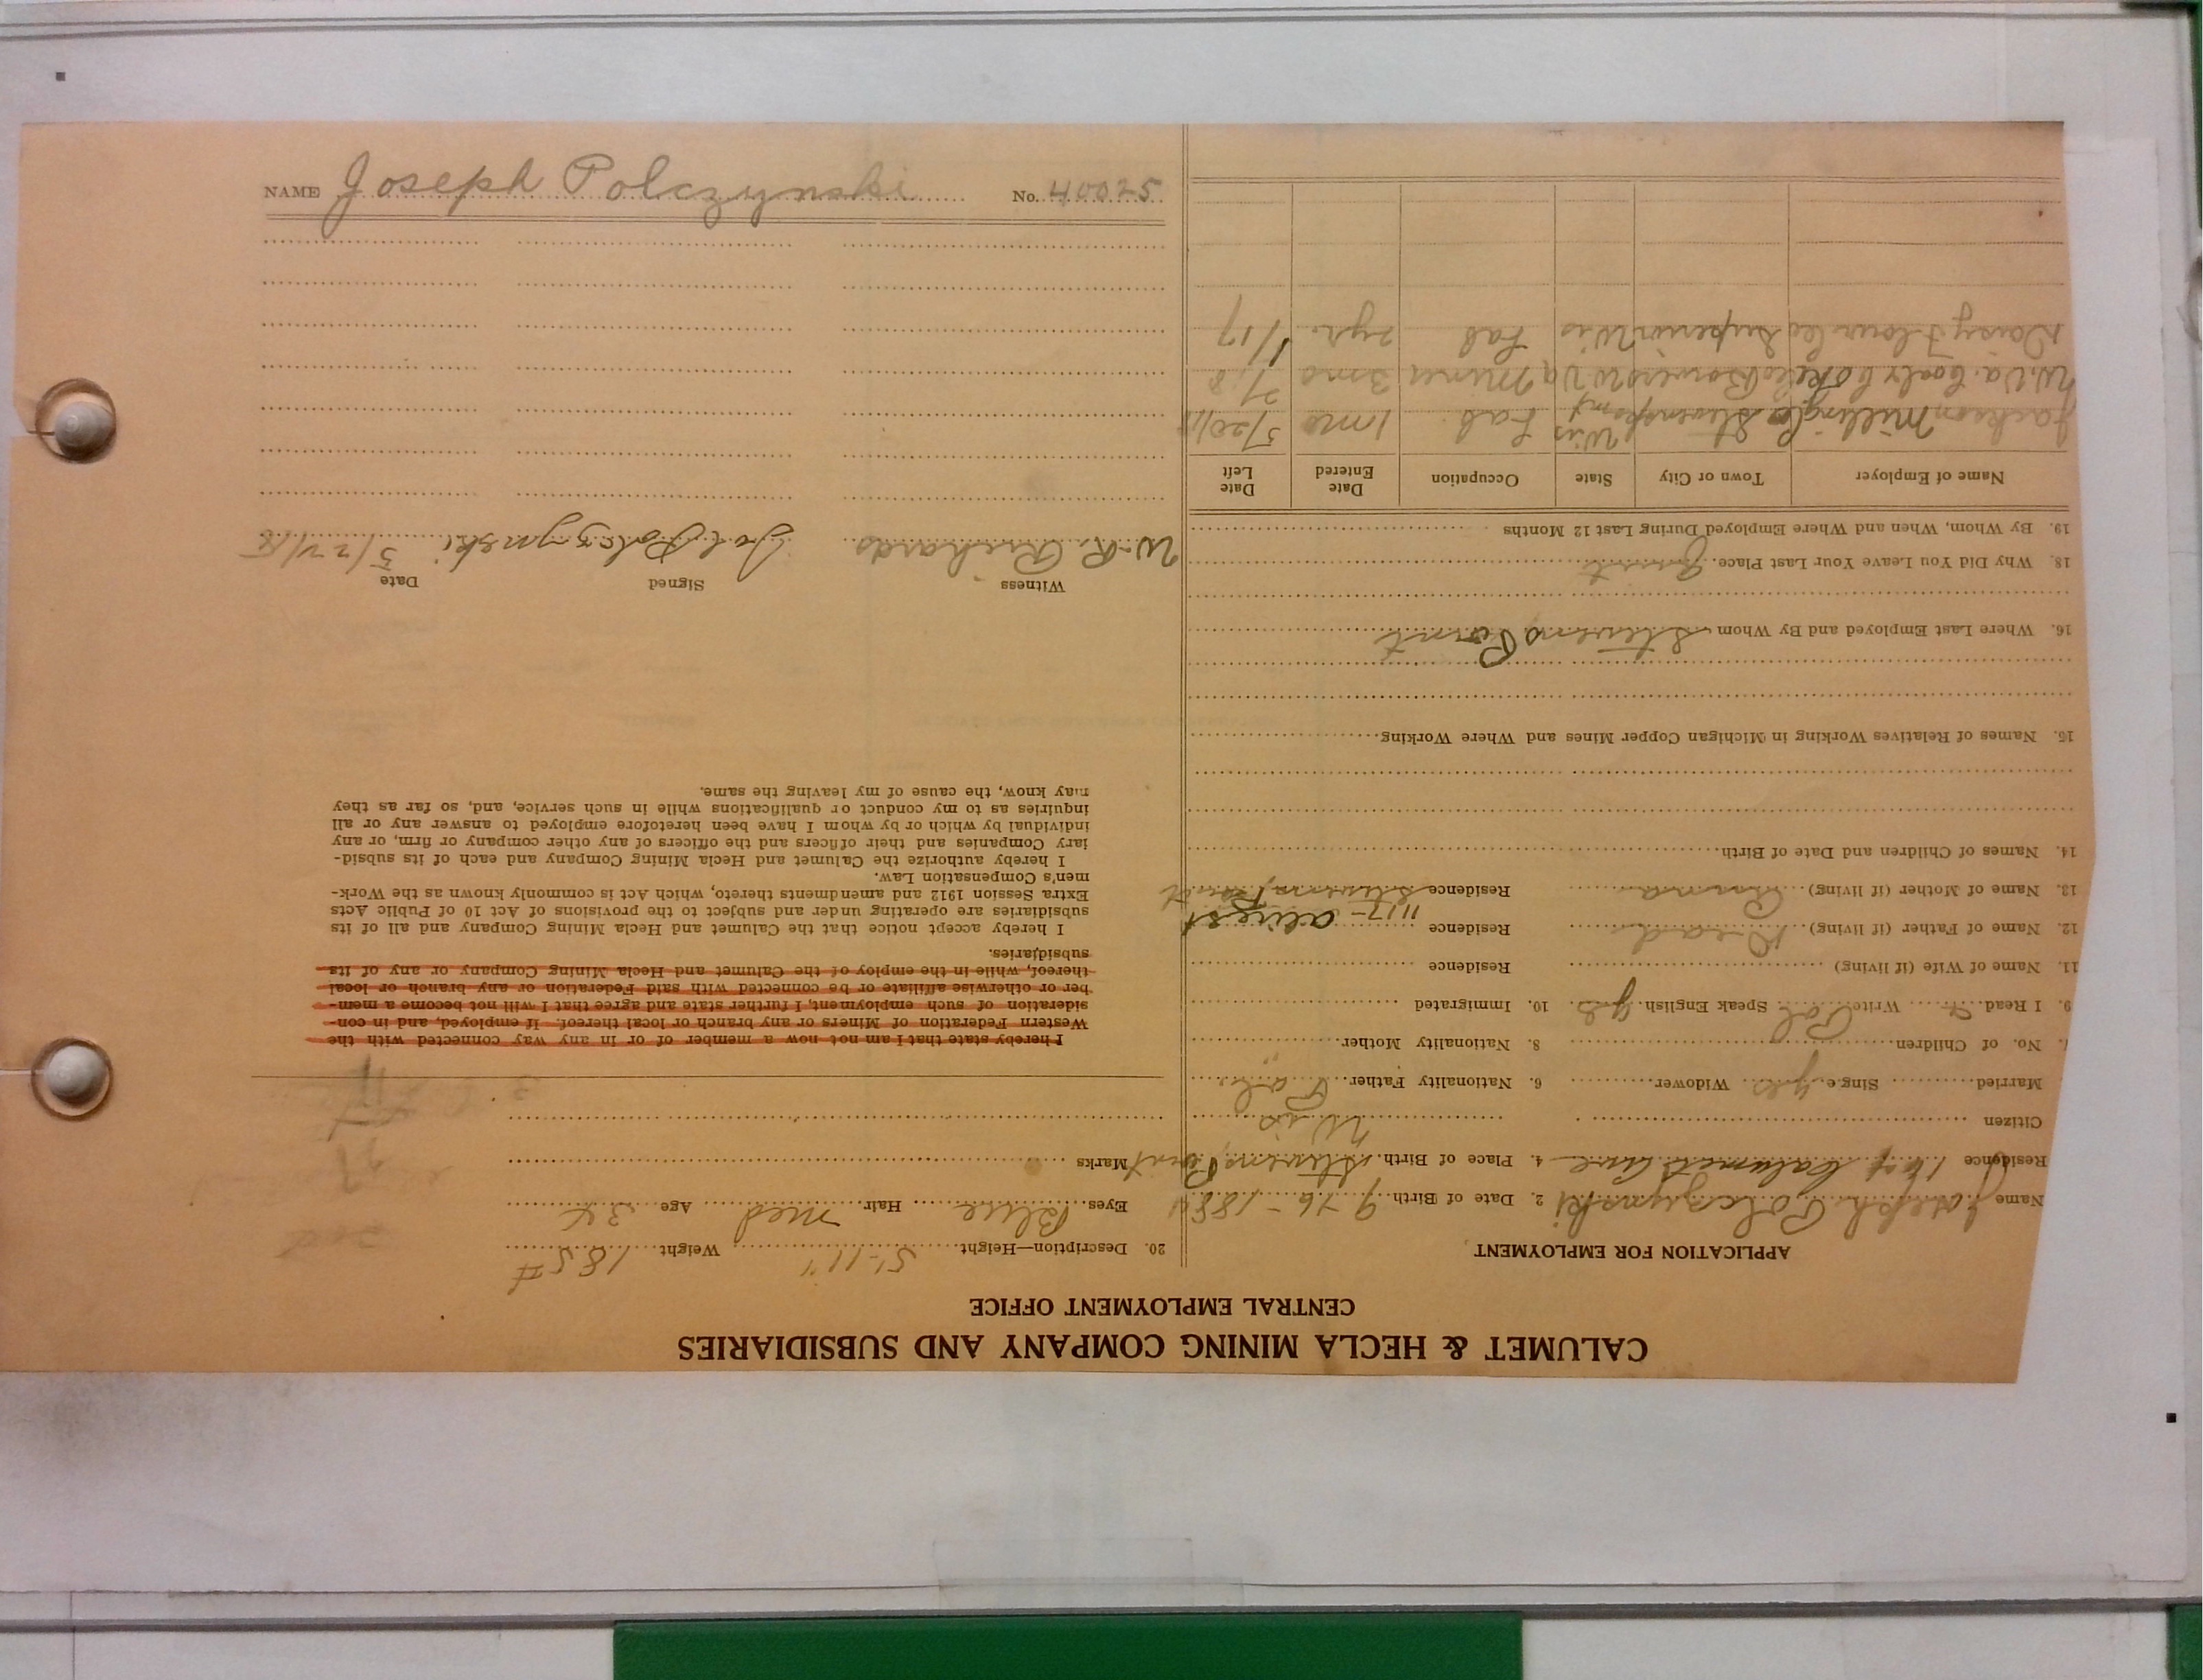 NAME Joseph Polczynski No. 40025
CALUMET & HECLA MINING COMPANY AND SUBSIDIARIES
CENTRAL EMPLOYMENT OFFICE
APPLICATION FOR EMPLOYMENT
Name Joseph Polczynski 2. Date of Birth 9-16-1884
Residence Calumet Ave 4. Place of Birth Stevens Point
Wis
Citizen
Married Single yes Widower 6. Nationality Father Pole
7. No. of Children 8. Nationality Mother "
9. I Read Write Pol Speak English yes 10. Immigrated
11. Name of Wife (if living) Residence
12. Name of Father (if living) Dead Residence
1117
13. Name of Mother (if living) Anna Residence Stevens Point
14. Names of Children and Date of Birth
15. Names of Relatives Working in Michigan Copper Mines and Where Working
16. Where Last Employed and By Whom Stevens Point
18. Why Did You Leave Your Last Place quit
19. By Whom, When and Where Employed During Last 12 Months
Name of Employer Town or City State Occupation Date Entered Date Left
Jackson Milling Co Stevens Point Wis Lab 1 mo 5/20/18
W. Va. Coal & Coke Co W Va Miner 3 mo
Daisy Flour Co Superior Wis Lab 2 yr. 1/17
20. Description—Height 5'-11" Weight 185#
Eyes Blue Hair med Age 34
Marks
I hereby state that I am not now a member of or in any way connected with the
Western Federation of Miners or any branch or local thereof. If employed, and in con-
sideration of such employment, I further state and agree that I will not become a mem-
ber or otherwise affiliate or be connected with said Federation or any branch or local
thereof, while in the employ of the Calumet and Hecla Mining Company or any of its
subsidiaries.
I hereby accept notice that the Calumet and Hecla Mining Company and all of its
subsidiaries are operating under and subject to the provisions of Act 10 of Public Acts
Extra Session 1912 and amendments thereto, which Act is commonly known as the Work-
men's Compensation Law.
I hereby authorize the Calumet and Hecla Mining Company and each of its subsid-
iary Companies and their officers and the officers of any other company or firm, or any
individual by which or by whom I have been heretofore employed to answer any or all
inquiries as to my conduct or qualifications while in such service, and, so far as they
may know, the cause of my leaving the same.
Witness Signed Date
W. R. Richards Jos Polczynski 5/22/18